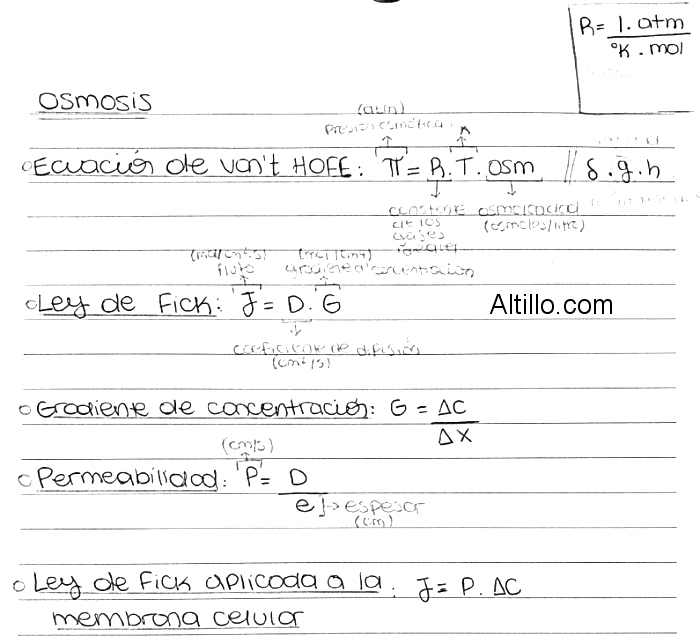 R= l.atm
°K.mol
OSMOSIS
(atm)
Presión osmótica
K
Ecuación de Van't HOFF: π= R.T.osm // δ.g.h
constante osmolaridad
de los (osmoles/litro)
gases
ideales
(mol/cm².s) (mol/cm⁴)
flujo gradiente de concentración
Ley de Fick: J= D.G
Altillo.com
coeficiente de difusión
(cm²/s)
Gradiente de concentración: G = ΔC
ΔX
(cm/s)
Permeabilidad: P= D
e → espesor
(cm)
Ley de Fick aplicada a la : J= P.ΔC
membrana celular